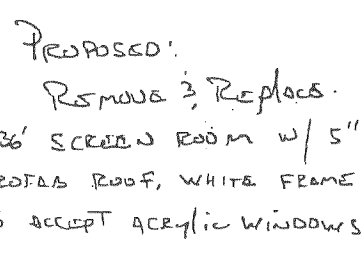 PROPOSED:
REMOVE & REPLACE.
36' SCREEN ROOM W/ 5"
ROOF, WHITE FRAME
ACCEPT ACRYLIC WINDOWS